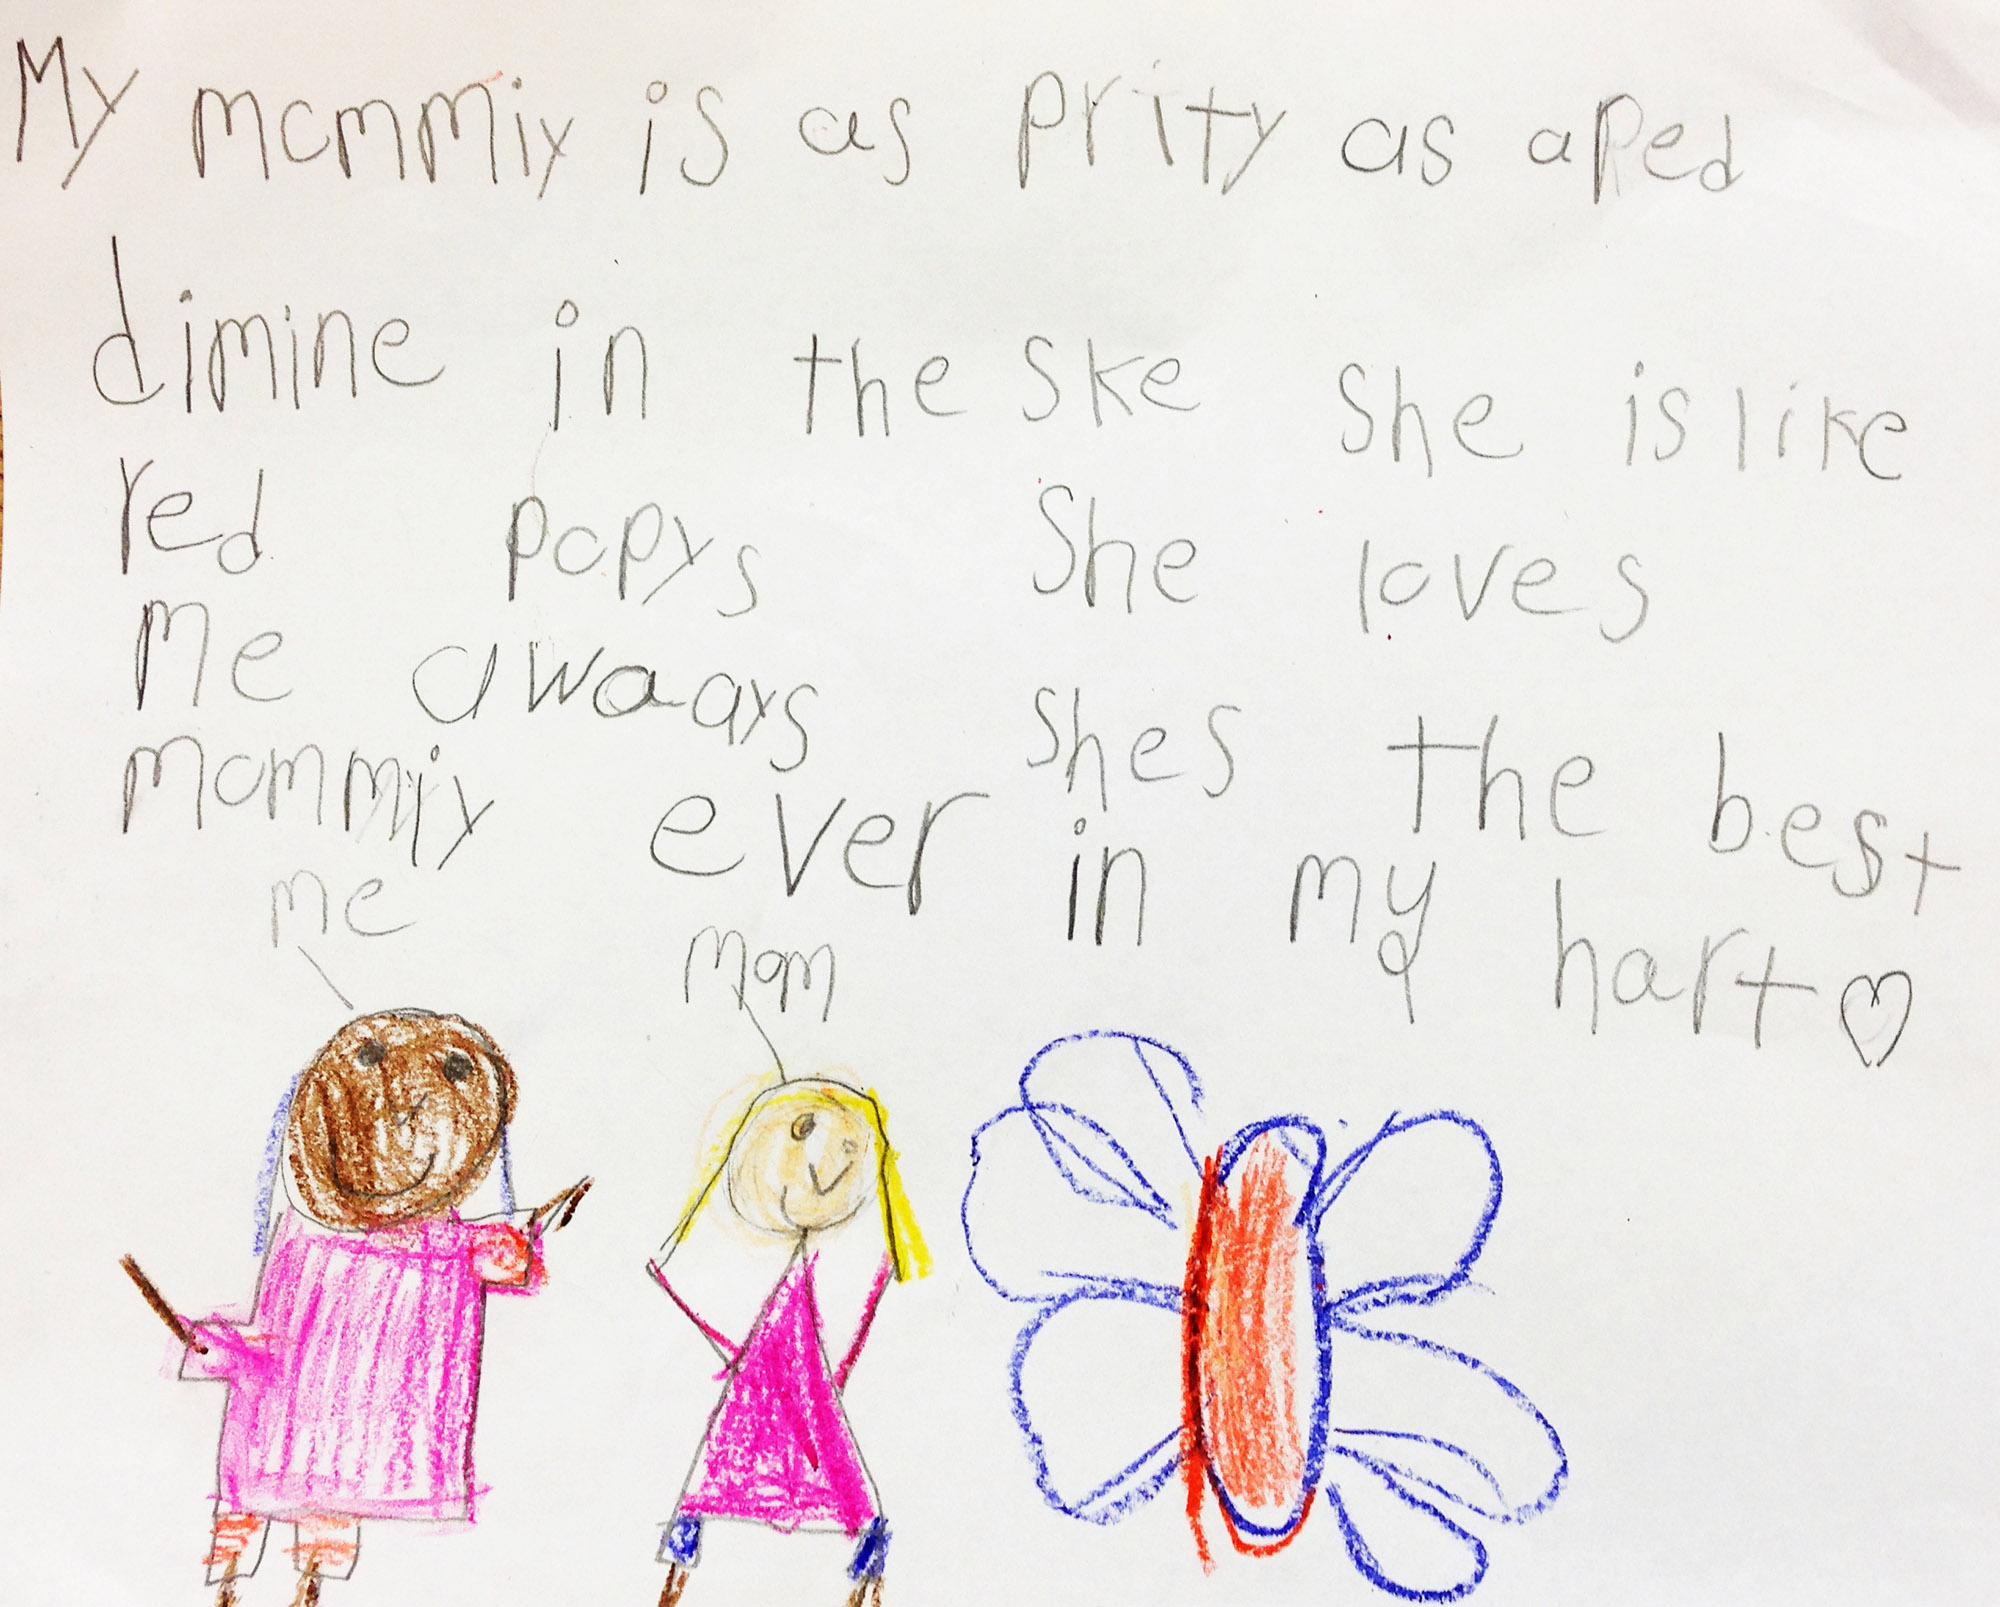 My mommiy is as prity as a Red
dimine in the ske She is like
red popys She loves
me awaays shes the best
mommiy ever in my hart
me
mom